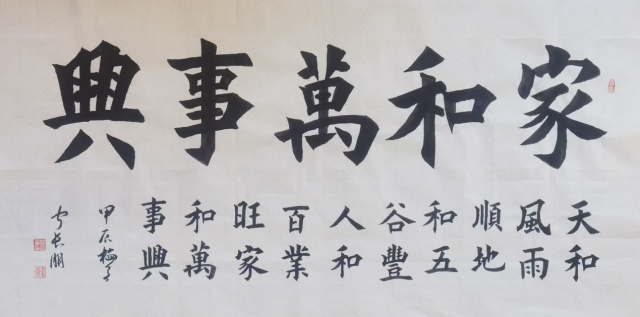 家和萬事興
天和
風雨
順地
和五
谷豐
人和
百業
旺家
和萬
事興
甲辰梅月